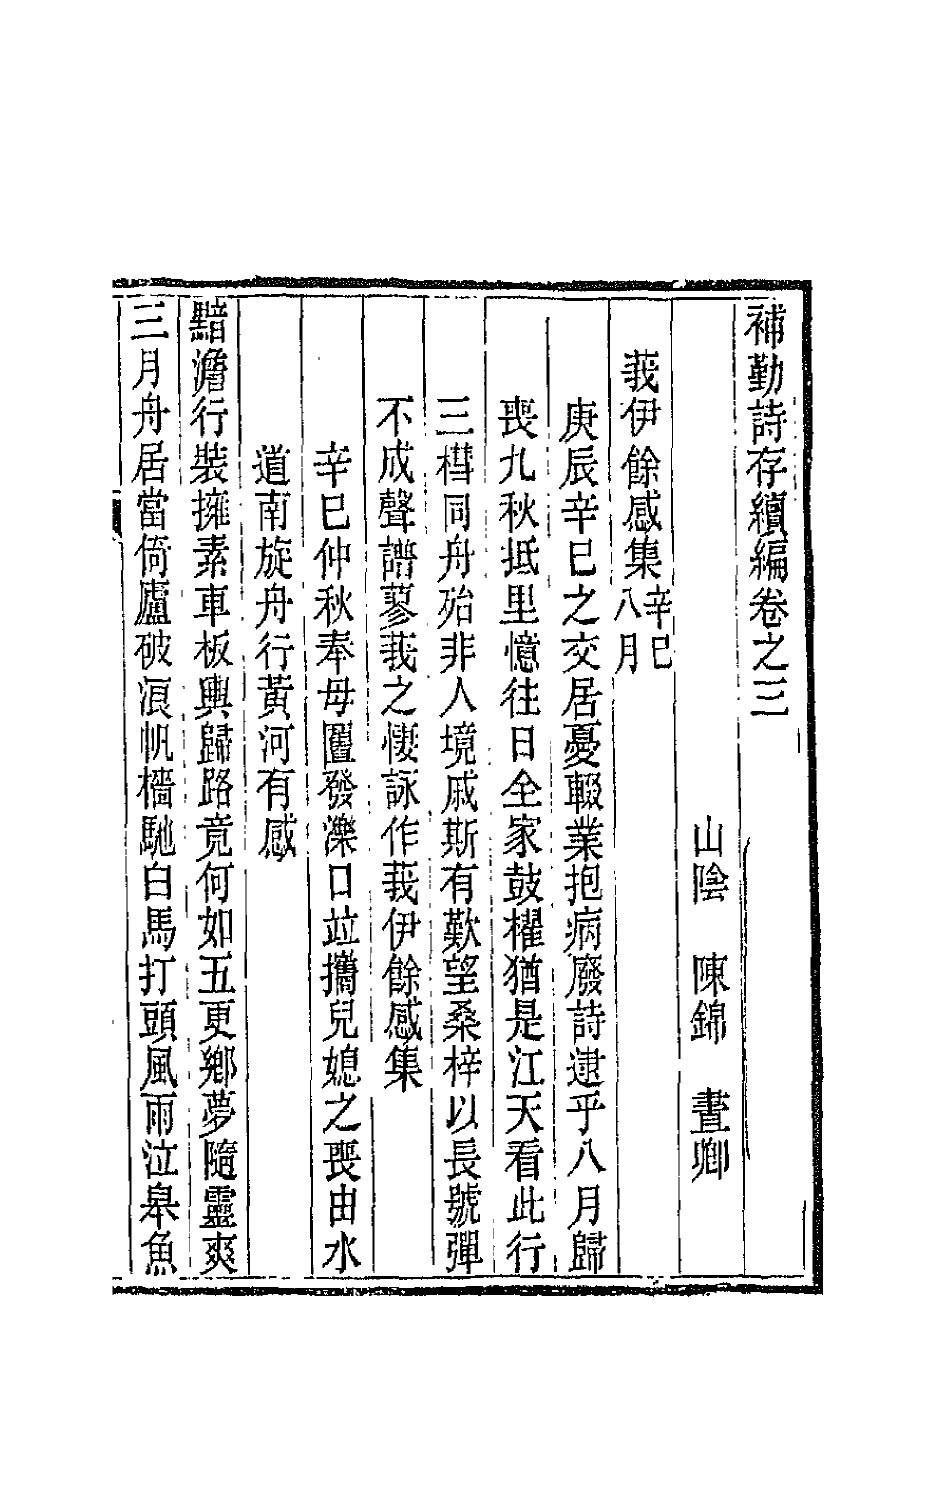 補勤詩存續編卷之三
山陰　陳錦　晝卿
莪伊餘感集辛巳八月
庚辰辛巳之交居憂輟業抱病廢詩逮乎八月歸
喪九秋抵里憶往日全家鼓櫂猶是江天看此行
三槥同舟殆非人境戚斯有歎望桑梓以長號彈
不成聲譜蓼莪之悽詠作莪伊餘感集
辛巳仲秋奉母匶發濼口竝攜兒媳之喪由水
道南旋舟行黃河有感
黯澹行裝擁素車板輿歸路竟何如五更鄉夢隨靈爽
三月舟居當倚廬破浪帆檣馳白馬打頭風雨泣皋魚